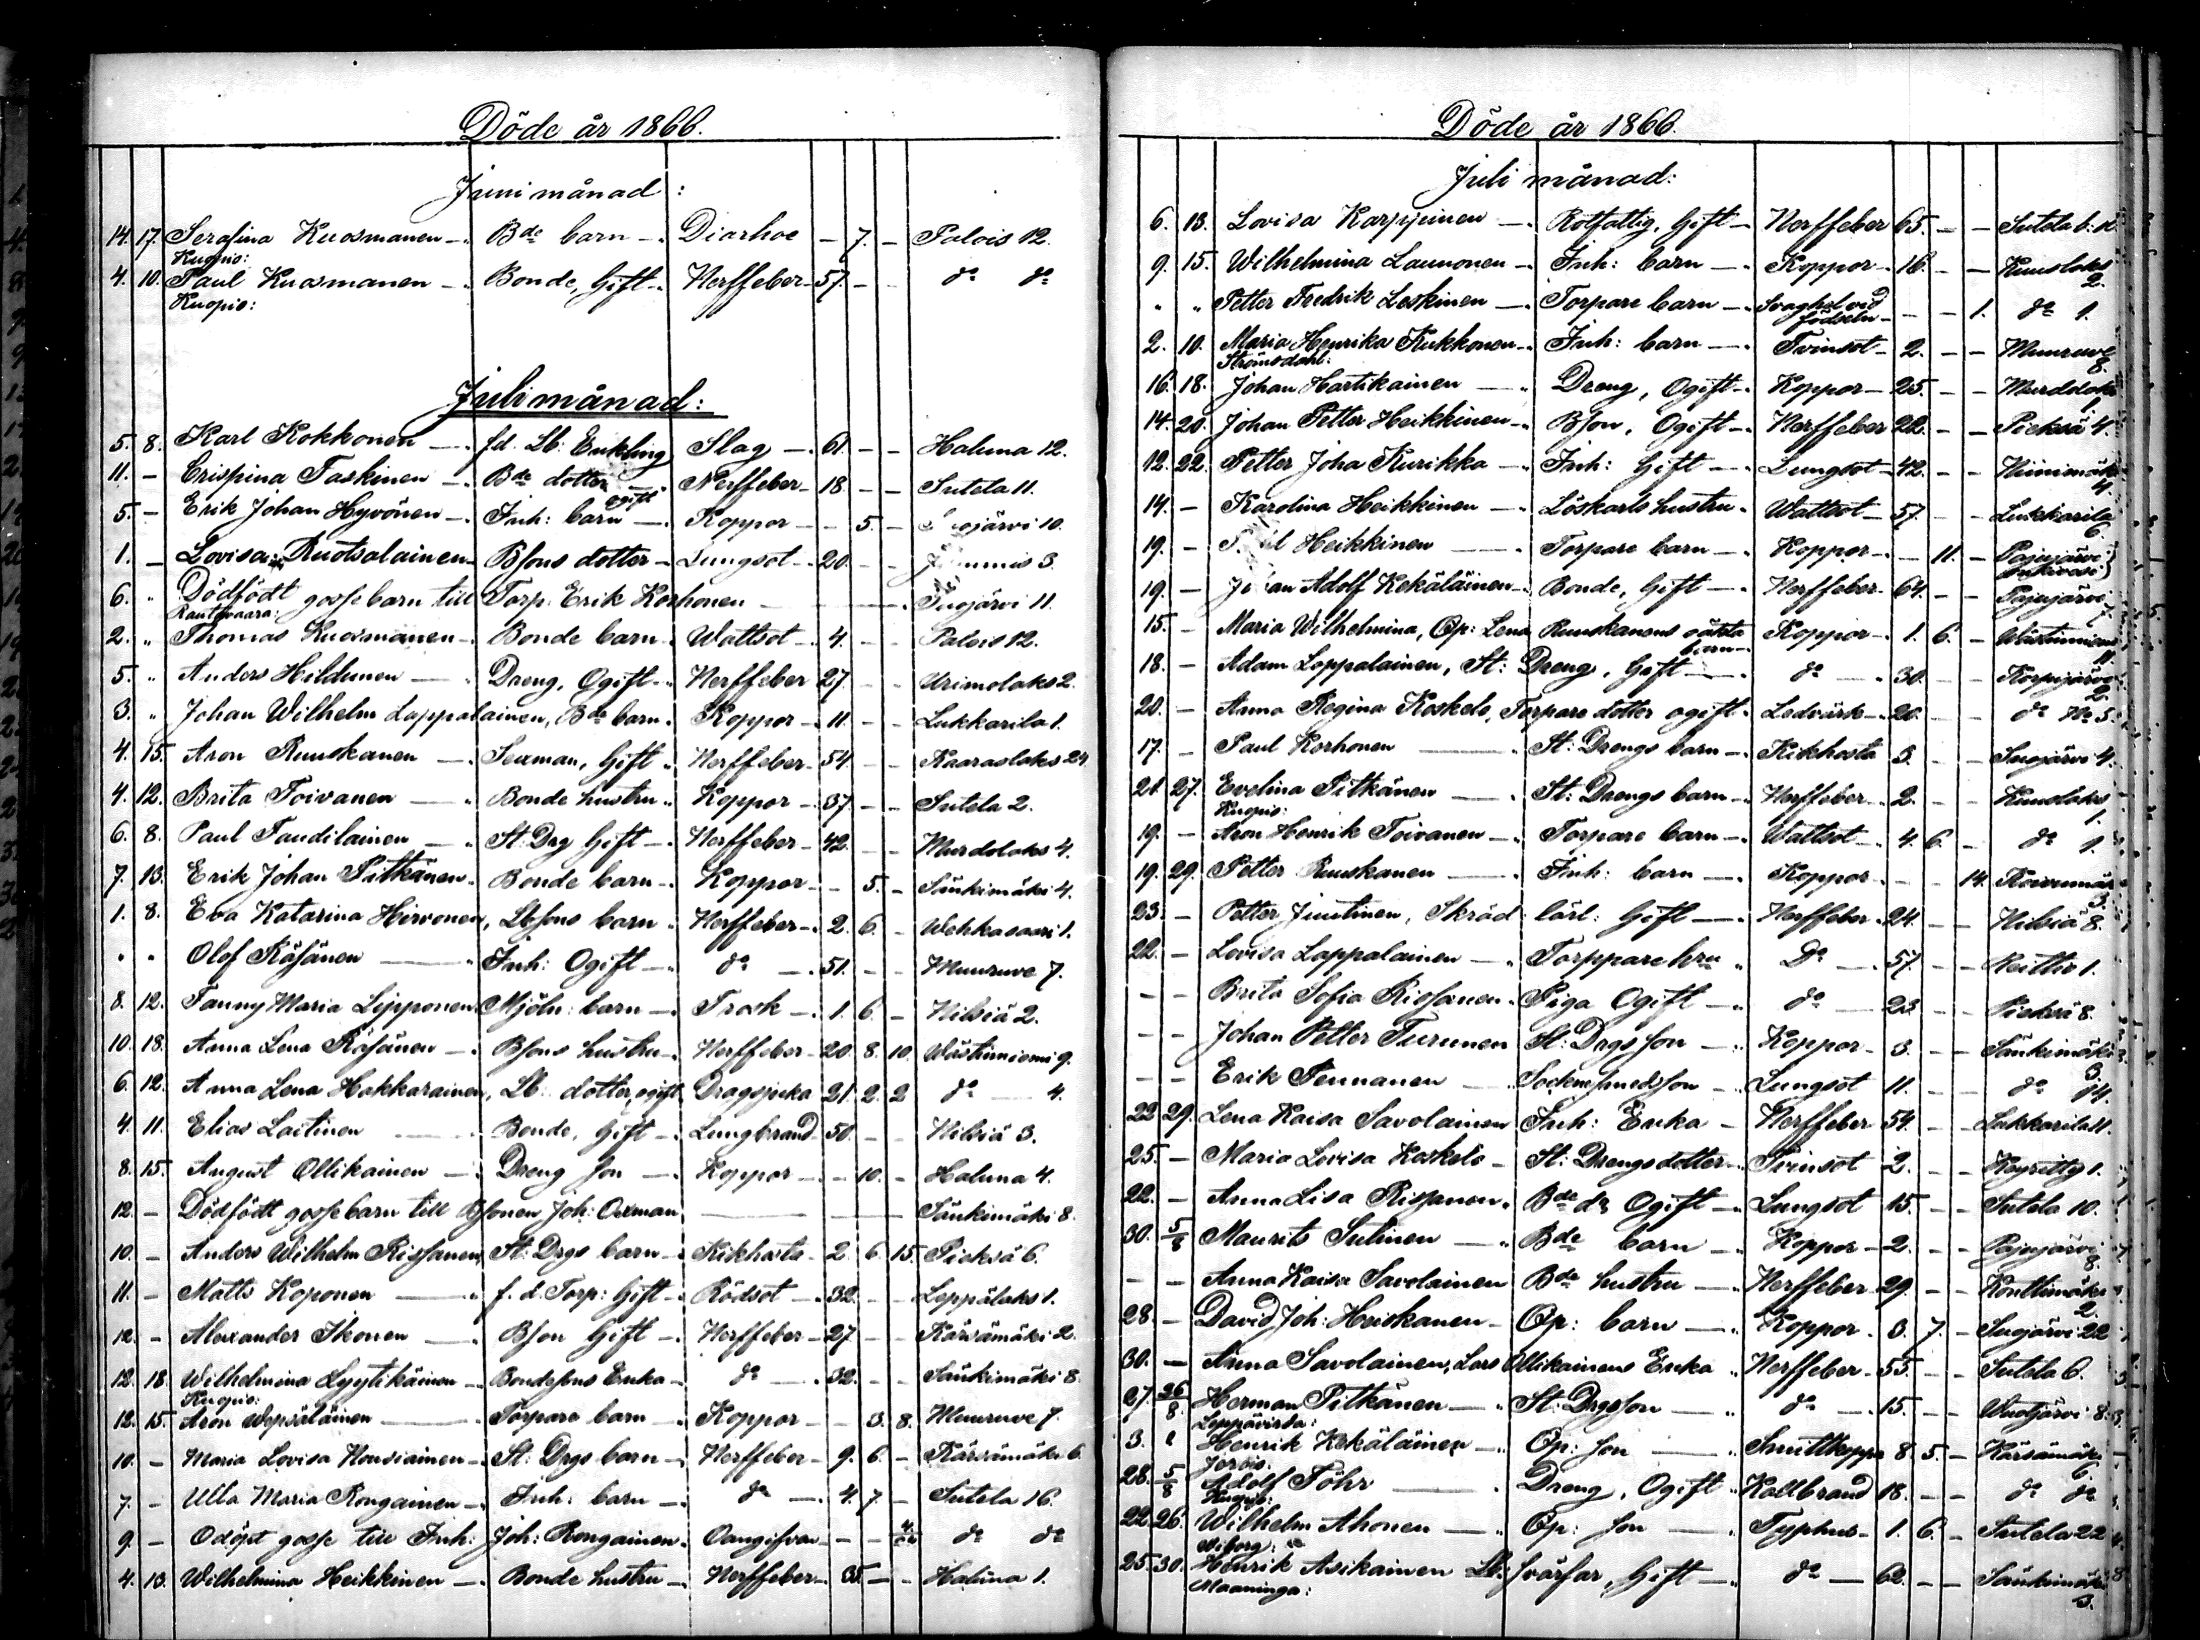 Döde år 1866.
Juni månad:
14. 17. Serafina Kuosmanen Bde barn Diarhoe - 7. - Palois 12.
Kuopio:
4. 10. Paul Kuosmanen Bonde, Gift Nerffeber 57. - - do do
Kuopio:
Juli månad:
5. 8. Karl Kokkonen fd. Lb: Enkling Slag 61. - - Haluna 12.
11. - Crispina Taskinen Bde dotter ogift Nerffeber 18. - - Sutela 11.
5. - Erik Johan Hyvönen Inh: barn Koppor - 5. - 10.
1. - Lovisa Ruotsalainen Bsons dotter Lungsot 20. - - 3.
6. " Dödfödt gosse barn till Torp. Erik Korhonen Sugjärvi 11.
Rautavaara:
2. " Thomas Kuosmanen Bonde barn Wattsot 4. - - Palois 12.
5. " Anders Hildunen Dreng, Ogift Nerffeber 27. - - Urimolaks 2.
3. " Johan Wilhelm Lappalainen, Bde barn Koppor 11. - - Lukkarila 1.
4. 15. Aron Ruuskanen Sexman, Gift Nerffeber 54. - - Kaaraslaks 24.
4. 12. Brita Toivanen Bonde hustru Koppor 37. - - Sutela 2.
6. 8. Paul Taudilainen St: Drg Gift Nerffeber 42. - - Murdolaks 4.
7. 13. Erik Johan Pitkänen Bonde barn Koppor - 5. - Sänkimäki 4.
1. 8. Eva Katarina Hirvonen, Lbsons barn Nerffeber 2. 6. - Wehkasaari 1.
" " Olof Räsänen Inh: Ogift do 51. - - Muuruve 7.
8. 12. Fanny Maria Lipponen Mjöln: barn Trosk 1. 6. - Nilsiä 2.
10. 18. Anna Lena Räsänen Bsons hustru Nerffeber 20. 8. 10. Wästinniemi 9.
6. 12. Anna Lena Hakkarainen, Lb: dotter, ogift Dragsjuka 21. 2. 2 do 4.
4. 11. Elias Laitinen Bonde, Gift Lungbrand 50. - - Nilsiä 3.
8. 15. August Ollikainen Dreng son Koppor - 10. - Haluna 4.
12. - Dödfödt gosse barn till Bsonen Joh: Oxman Sänkimäki 8.
10. - Anders Wilhelm Rissanen St: Drgs barn Kikhosta 2. 6. 15. Pieksä 6.
11. - Matts Koponen f. d. Torp: Gift Rödsot 32. - - Leppälaks 1.
12. - Alexander Ikonen Bson Gift Nerffeber 27. - - Kärsämäki 2.
12. 18. Wilhelmina Lyytikäinen Bondesons Enka do 32. - - Sänkimäki 8.
Kuopio:
12. 15. Aron Wepsäläinen Torpare barn Koppor - 3. 8. Muuruve 7.
10. - Maria Lovisa Housiainen St: Drgs barn Nerffeber 9. 6. - Kärsämäki 6.
7. - Ulla Maria Rongainen Inh: barn do 4. 7. - Sutela 16.
9. - Odöpt gosse till Inh: Joh: Rongainen Oangifven - - do do
4. 13. Wilhelmina Heikkinen Bonde hustru Nerffeber 35. - - Haluna 1.
Döde år 1866.
Juli månad:
6. 13. Lovisa Karppinen Rotfattig, Gift Nerffeber 65. - - Sutela
9. 15. Wilhelmina Launonen Inh: barn Koppor 16. - - Kuuslaks 2.
" " Petter Fredrik Leskinen Torpare barn Svaghet vid födseln - - 1. do 1.
2. 10. Maria Henrika Kukkonen Inh: barn Tvinsot 2. - - Muuruve 8.
Strömsdahl:
16. 18. Johan Hartikainen Dreng, Ogift Koppor 25. - - Murdolaks
14. 20. Johan Petter Heikkinen Bson, Ogift Nerffeber 22. - - Pieksä 4.
12. 22. Petter Joha Kurikka Inh: Gift Lungsot 42. - - 4.
14. - Karolina Heikkinen Löskarls hustru Wattsot 57. - - Lukkarila 6.
19. - Heikkinen Torpare barn Koppor - 11. - Pajujärvi
19. - Adolf Kekäläinen Bonde, Gift Nerffeber 64. - - Pajujärvi 7.
15. - Maria Wilhelmina, Qp: Lena Ruuskanens oäkta barn Koppor 1. 6. - Wästinniemi 11.
18. - Adam Loppalainen, St: Dreng, Gift do 30. - - Korpijärvi 2.
20. - Anna Regina Koskelo, Torpare dotter ogift Ledvärk 20. - - do No 3.
17. - Paul Korhonen St: Drengs barn Kikhosta 3. - - Sugjärvi 4.
21. 27. Evelina Pitkänen St: Drengs barn Nerffeber 2. - - Kuuslaks 1.
Kuopio:
19. - Aron Henrik Toivanen Torpare barn Wattsot 4. 6. - do 1.
19. 29. Petter Ruuskanen Inh: barn Koppor - - 14. 3.
23. - Petter Juutinen, Skräd: lärl: Gift Nerffeber 24. - - Nilsiä 8.
22. - Lovisa Lappalainen Torppare hru Do 57. - - Keitto 1.
- - Brita Sofia Rissanen Piga Ogift do 23 - - Pieksä 8.
- - Johan Petter Turunen St: Drgs son Koppor 3. - - Sänkimäki 3.
- - Erik Pennanen Sockensmedson Lungsot 11. - - do 14.
22. 29. Lena Kaisa Savolainen Inh: Enka Nerffeber 54. - - Lukkarila 11.
25. - Maria Lovisa Koskelo St: Drengs dotter Tvinsot 2. - - 1.
22. - Anna Lisa Rissanen Bde dr Ogift Lungsot 15. - - Sutela 10.
30. 5/8 Maurits Sutinen Bde barn Koppor 2. - - Pajujärvi 8.
- - Anna Kaisa Savolainen Bde hustru Nerffeber 29. - - Konttimäki 2.
28. - David Joh: Heiskanen Qp: barn Koppor 3. 7. - Sugjärvi 22
30. - Anna Savolainen, Lars Ollikainens Enka Nerffeber 55. - - Sutela 6.
27. 26/8 Herman Pitkänen St: Drgsson do 15. - - Wuotjärvi 8.
Leppävirta:
3. Henrik Kekäläinen Qp: son Smittkoppor 8. 5. - Kärsämäki 6.
Jorois.
28. 5/8 Adolf Föhr Dreng, Ogift Kallbrand 18. - - do do
Kuopio:
22. 26. Wilhelm Ahonen Qp: son Typhus 1. 6. - Sutela 22
Wiborg:
25. 30. Henrik Asikainen Lb: svärfar, Gift do 62. - - Sänkimäki 3.
Maaninga: